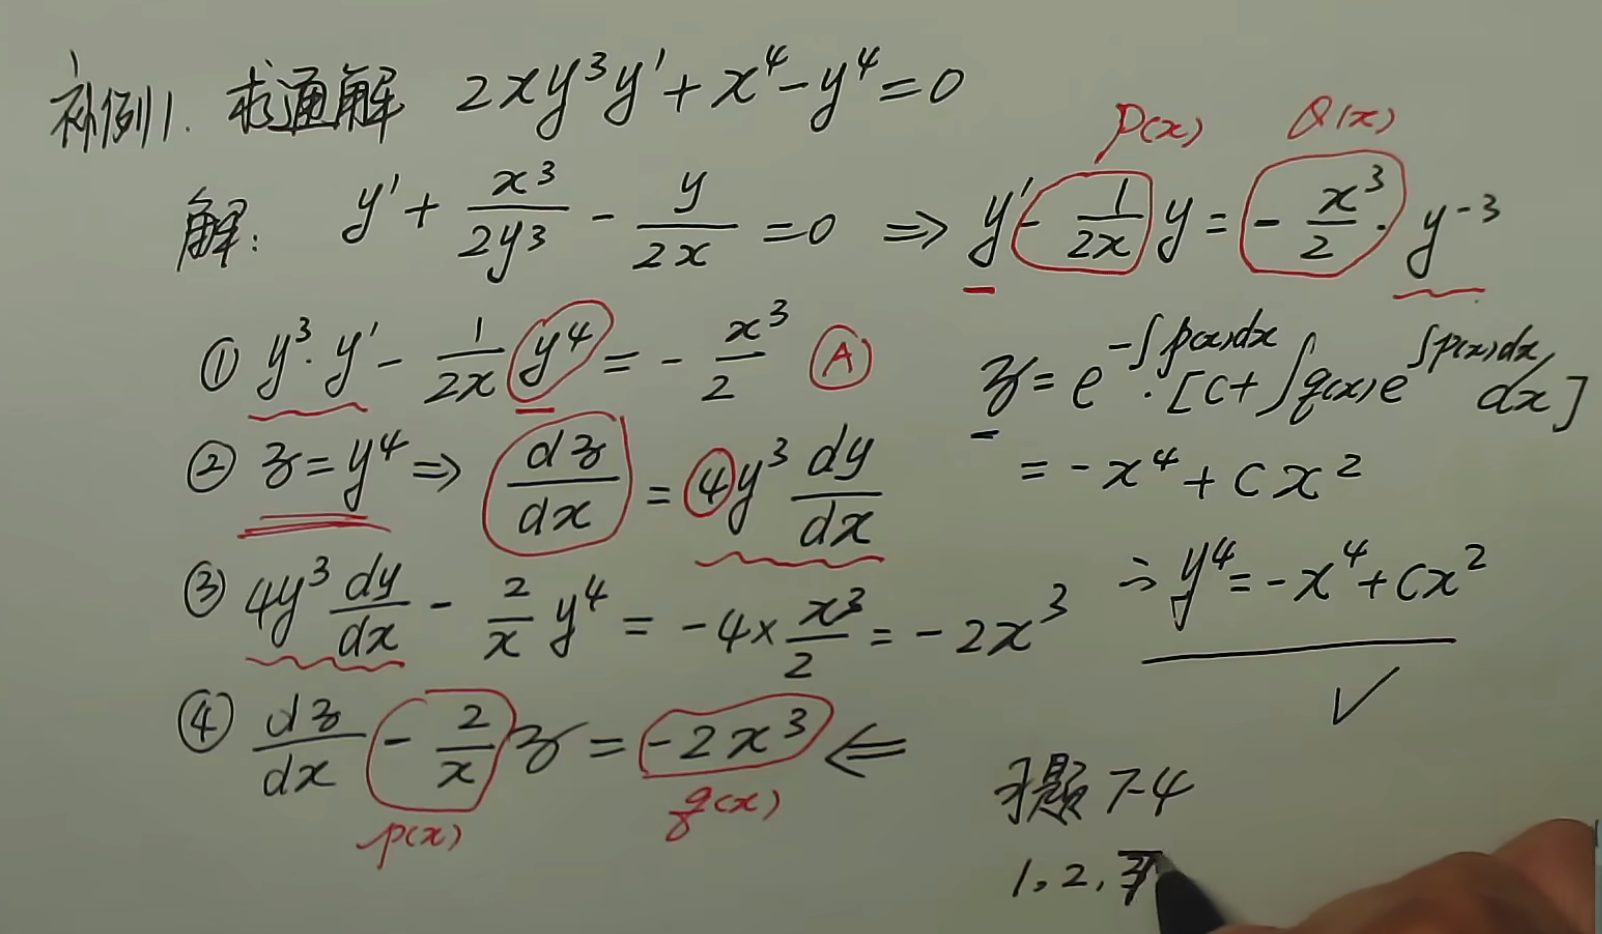 补例1. 求通解 2xy³y′+x⁴-y⁴=0
P(x) Q(x)
解: y′+x³/2y³-y/2x=0 ⇒ y′-1/2x y=-x³/2·y⁻³
① y³·y′-1/2x y⁴=-x³/2 Ⓐ
② z=y⁴⇒dz/dx=4y³dy/dx
③ 4y³dy/dx-2/x y⁴=-4×x³/2=-2x³
④ dz/dx-2/x z=-2x³ ⇐
p(x) q(x)
z=e^{-∫p(x)dx}·[c+∫q(x)e^{∫p(x)dx}dx]
=-x⁴+cx²
⇒y⁴=-x⁴+cx²
✓
习题7-4
1,2,